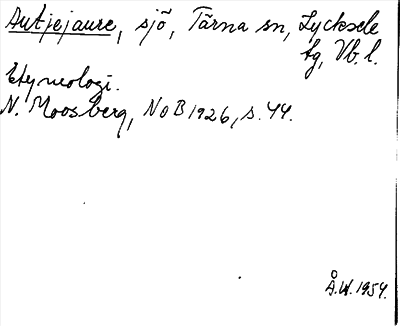 Autjejaure, sjö, Tärna sn, Lycksele
tg, Vb. l.
Etymologi.
N. Moosberg, NoB 1926, s. 44.
Å.W. 1954.